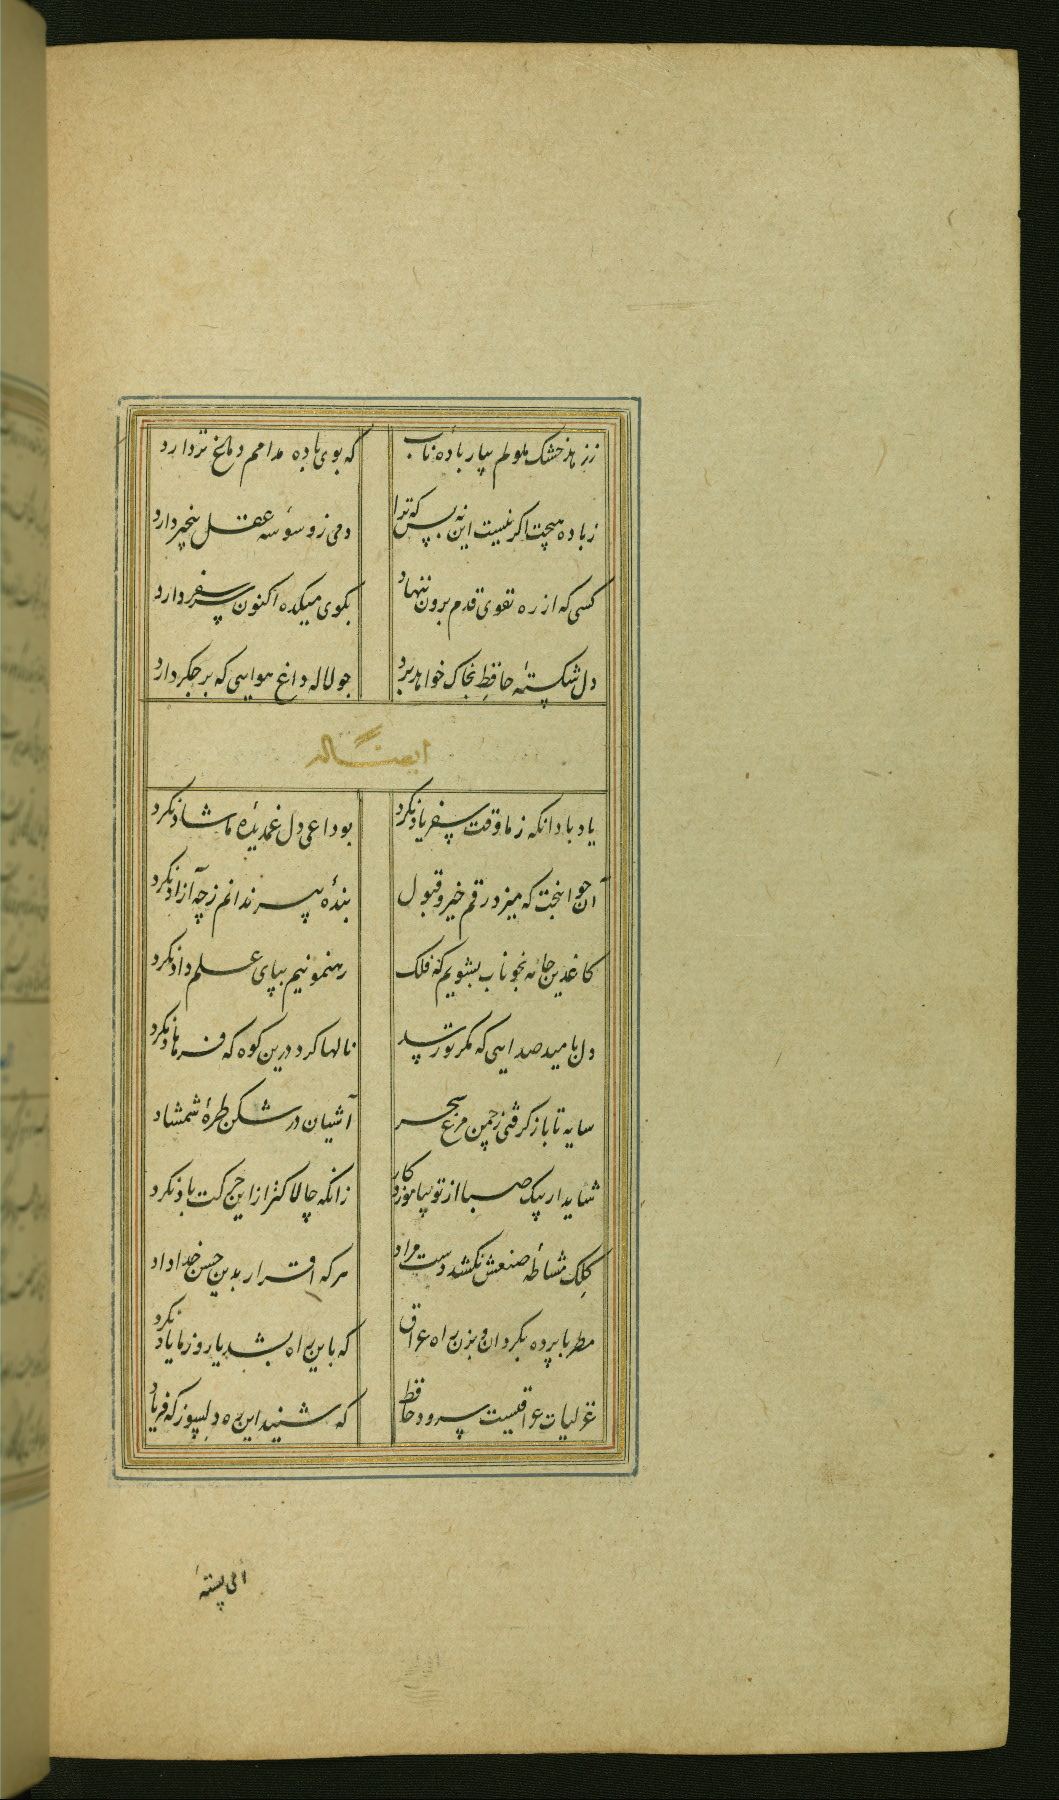 ززهد خشک ملولم بیار بادهٔ ناب که بوی باده مدامم دماغ تر دارد
زباده هیچت اگر نیست این نه بس که ترا دمی ز وسوسهٔ عقل بیخبر دارد
کسی که از ره تقوی قدم برون ننهاد بکوی میکده اکنون سر سفر دارد
دل شکستهٔ حافظ بخاک خواهد برد چو لاله داغ هوایی که بر جگر دارد
ایضا له
یاد باد انکه ز ما وقت سفر یاد نکرد بوداعی دل غمدیدهٔ ما شاد نکرد
آن جوانبخت که میزد رقم خیر و قبول بندهٔ پیر ندانم ز چه آزاد نکرد
کاغذین جامه بخوناب بشویم که فلک رهنمونیم بپای علم داد نکرد
دل بامید صدایی که مگر در تو رسد نالها کرد درین کوه که فرهاد نکرد
سایه تا بازگرفتی ز چمن مرغ سحر آشیان در شکن طرهٔ شمشاد
شاید ار پیک صبا از تو بیاموزد کار زانکه چالاکتر از این حرکت باد نکرد
کلک مشاطهٔ صنعش نکشد دست مراد هر که اقرار بدین حسن خداداد
مطربا پرده بگردان و بزن راه عراق که باین راه بشد یار و ز ما یاد نکرد
غزلیات عراقیست سرود حافظ که شنید این ره دلسوز که فریاد
ای پستهٔ